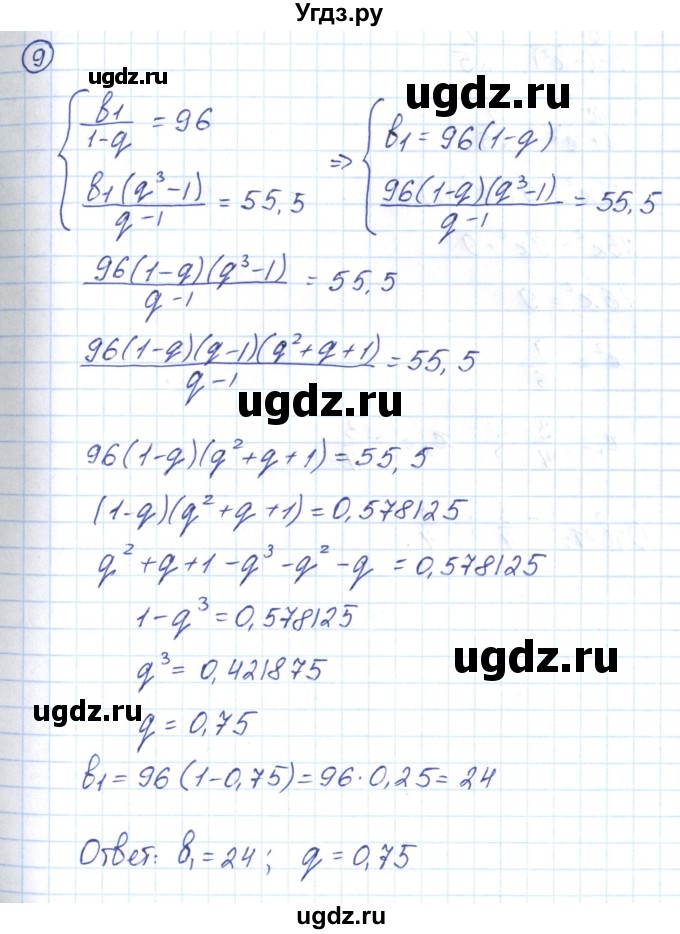 Угдз.ру
9
ugdz.ru
ugdz.ru
{ b1/(1-q) = 96 ⇒ { b1 = 96(1-q)
b1(q³-1)/(q-1) = 55,5 96(1-q)(q³-1)/(q-1) = 55,5
96(1-q)(q³-1)/(q-1) = 55,5
96(1-q)(q-1)(q²+q+1)/(q-1) = 55,5
ugdz.ru
96(1-q)(q²+q+1) = 55,5
(1-q)(q²+q+1) = 0,578125
q²+q+1-q³-q²-q = 0,578125
1-q³ = 0,578125
ugdz.ru
q³ = 0,421875
ugdz.ru
q = 0,75
b1 = 96(1-0,75) = 96·0,25 = 24
Ответ: b1 = 24; q = 0,75
ugdz.ru